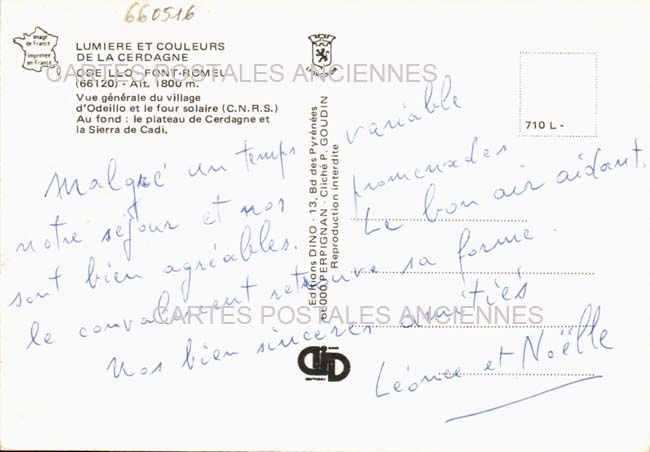 660516
Image
de France
Imprimée
en France
LUMIERE ET COULEURS
DE LA CERDAGNE
ODEILLO - FONT-ROMEU
(66120) - Alt. 1800 m.
Vue générale du village
d'Odeillo et le four solaire (C.N.R.S.)
Au fond : le plateau de Cerdagne et
la Sierra de Cadi.
CARTES POSTALES ANCIENNES
710 L -
Editions DINO - 13, Bd des Pyrénées
66000 PERPIGNAN - Cliché P. GOUDIN
Reproduction interdite
Malgré un temps variable
notre séjour et nos promenades
sont bien agréables. Le bon air aidant,
le convalescent retrouve sa forme.
Nos bien sincères amitiés
Léonce et Noëlle
CARTES POSTALES ANCIENNES